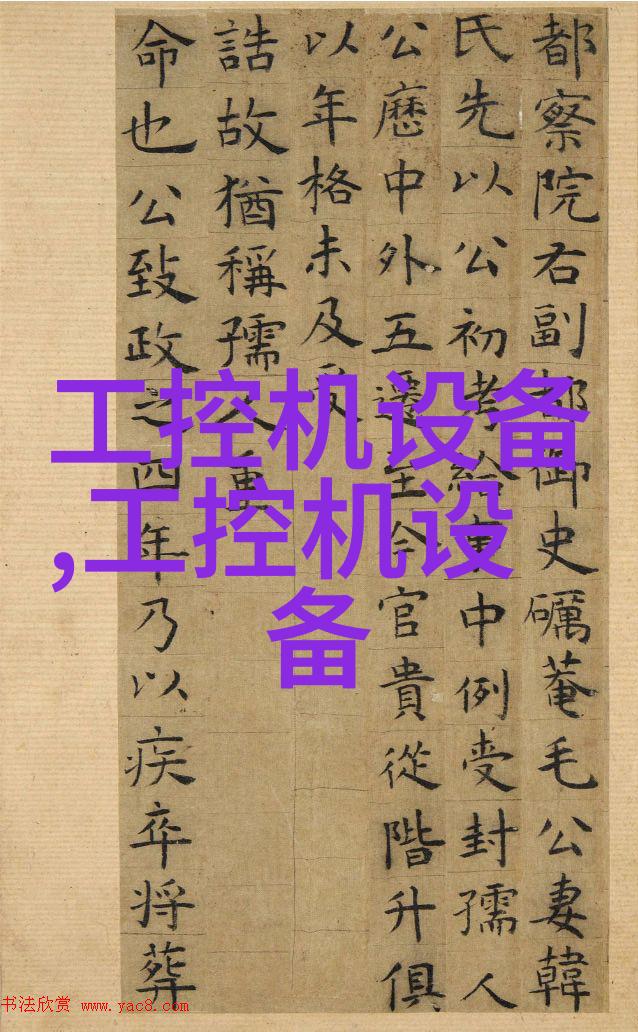 都察院右副都御史礪菴毛公妻韓
氏先以公初考給事中例受封孺人
公歷中外五遷至今官貴從階升俱
以年格未及受
誥故猶稱孺人重
命也公致政之四年乃以疾卒将葬
工控机设备
,工控机设
备
书法欣赏 www.yac8.com